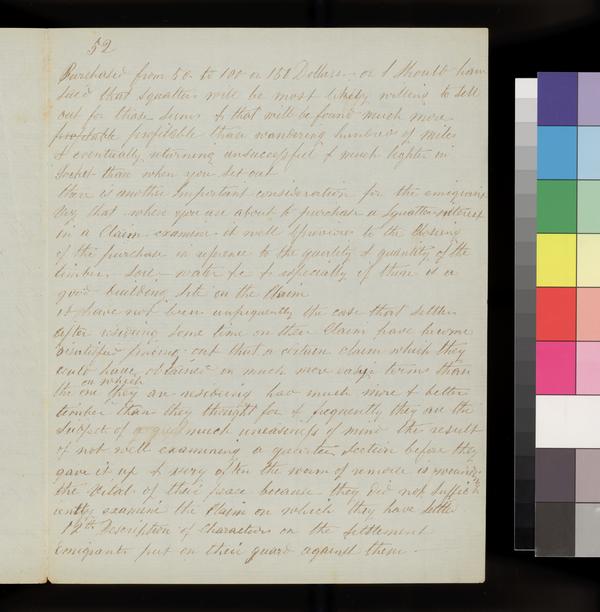 52
Purchased from 50 to 100 or 150 Dollars - or I should have
said that squatters will be most likely willing to sell
out for those sums & that will be found much more
profitable than wandering hundreds of miles
& eventually returning unsuccessful & much lighter in
Pocket than when you set out
there is another Important consideration for the emigrant
viz that when you are about to purchase a Squatters interest
in a Claim examine it well Previous to the Closeing
of the purchase in referance to the quality & quantity of the
timber - soil - water &c & especially if there is a
good building site on the Claim
it have not been unfrequently the case that settlers
after residing some time on their Claim have become
disatisfied finding out that a certain claim which they
could have obtained on much more easy terms than
the one on which they are residing had much more & better
timber than they thought for & frequently they are the
subject of much uneasiness of mind the result
of not well examining a quarter Section before they
gave it up & very often the worm of remorse is
the vitals of their peace because they did not suffici
ently examine the Claim on which they have settled
12th Description of Characters on the settlement
Emigrants put on their guard against them -